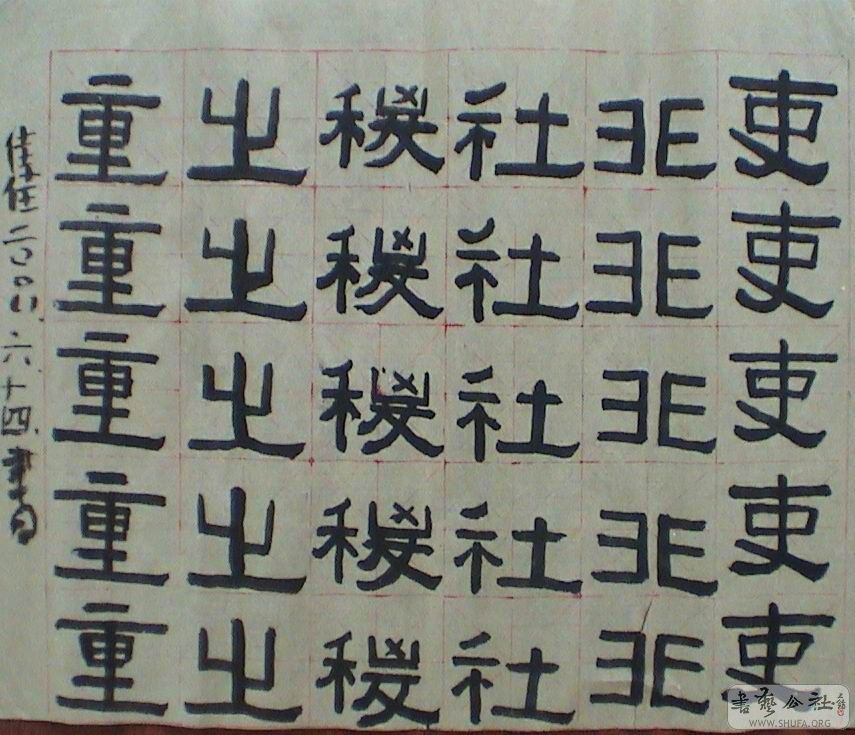 吏吏吏吏吏
非非非非非
社社社社社
稷稷稷稷稷
之之之之之
重重重重重
二〇〇八.六.十四.書
書藝公社
WWW.SHUFA.ORG